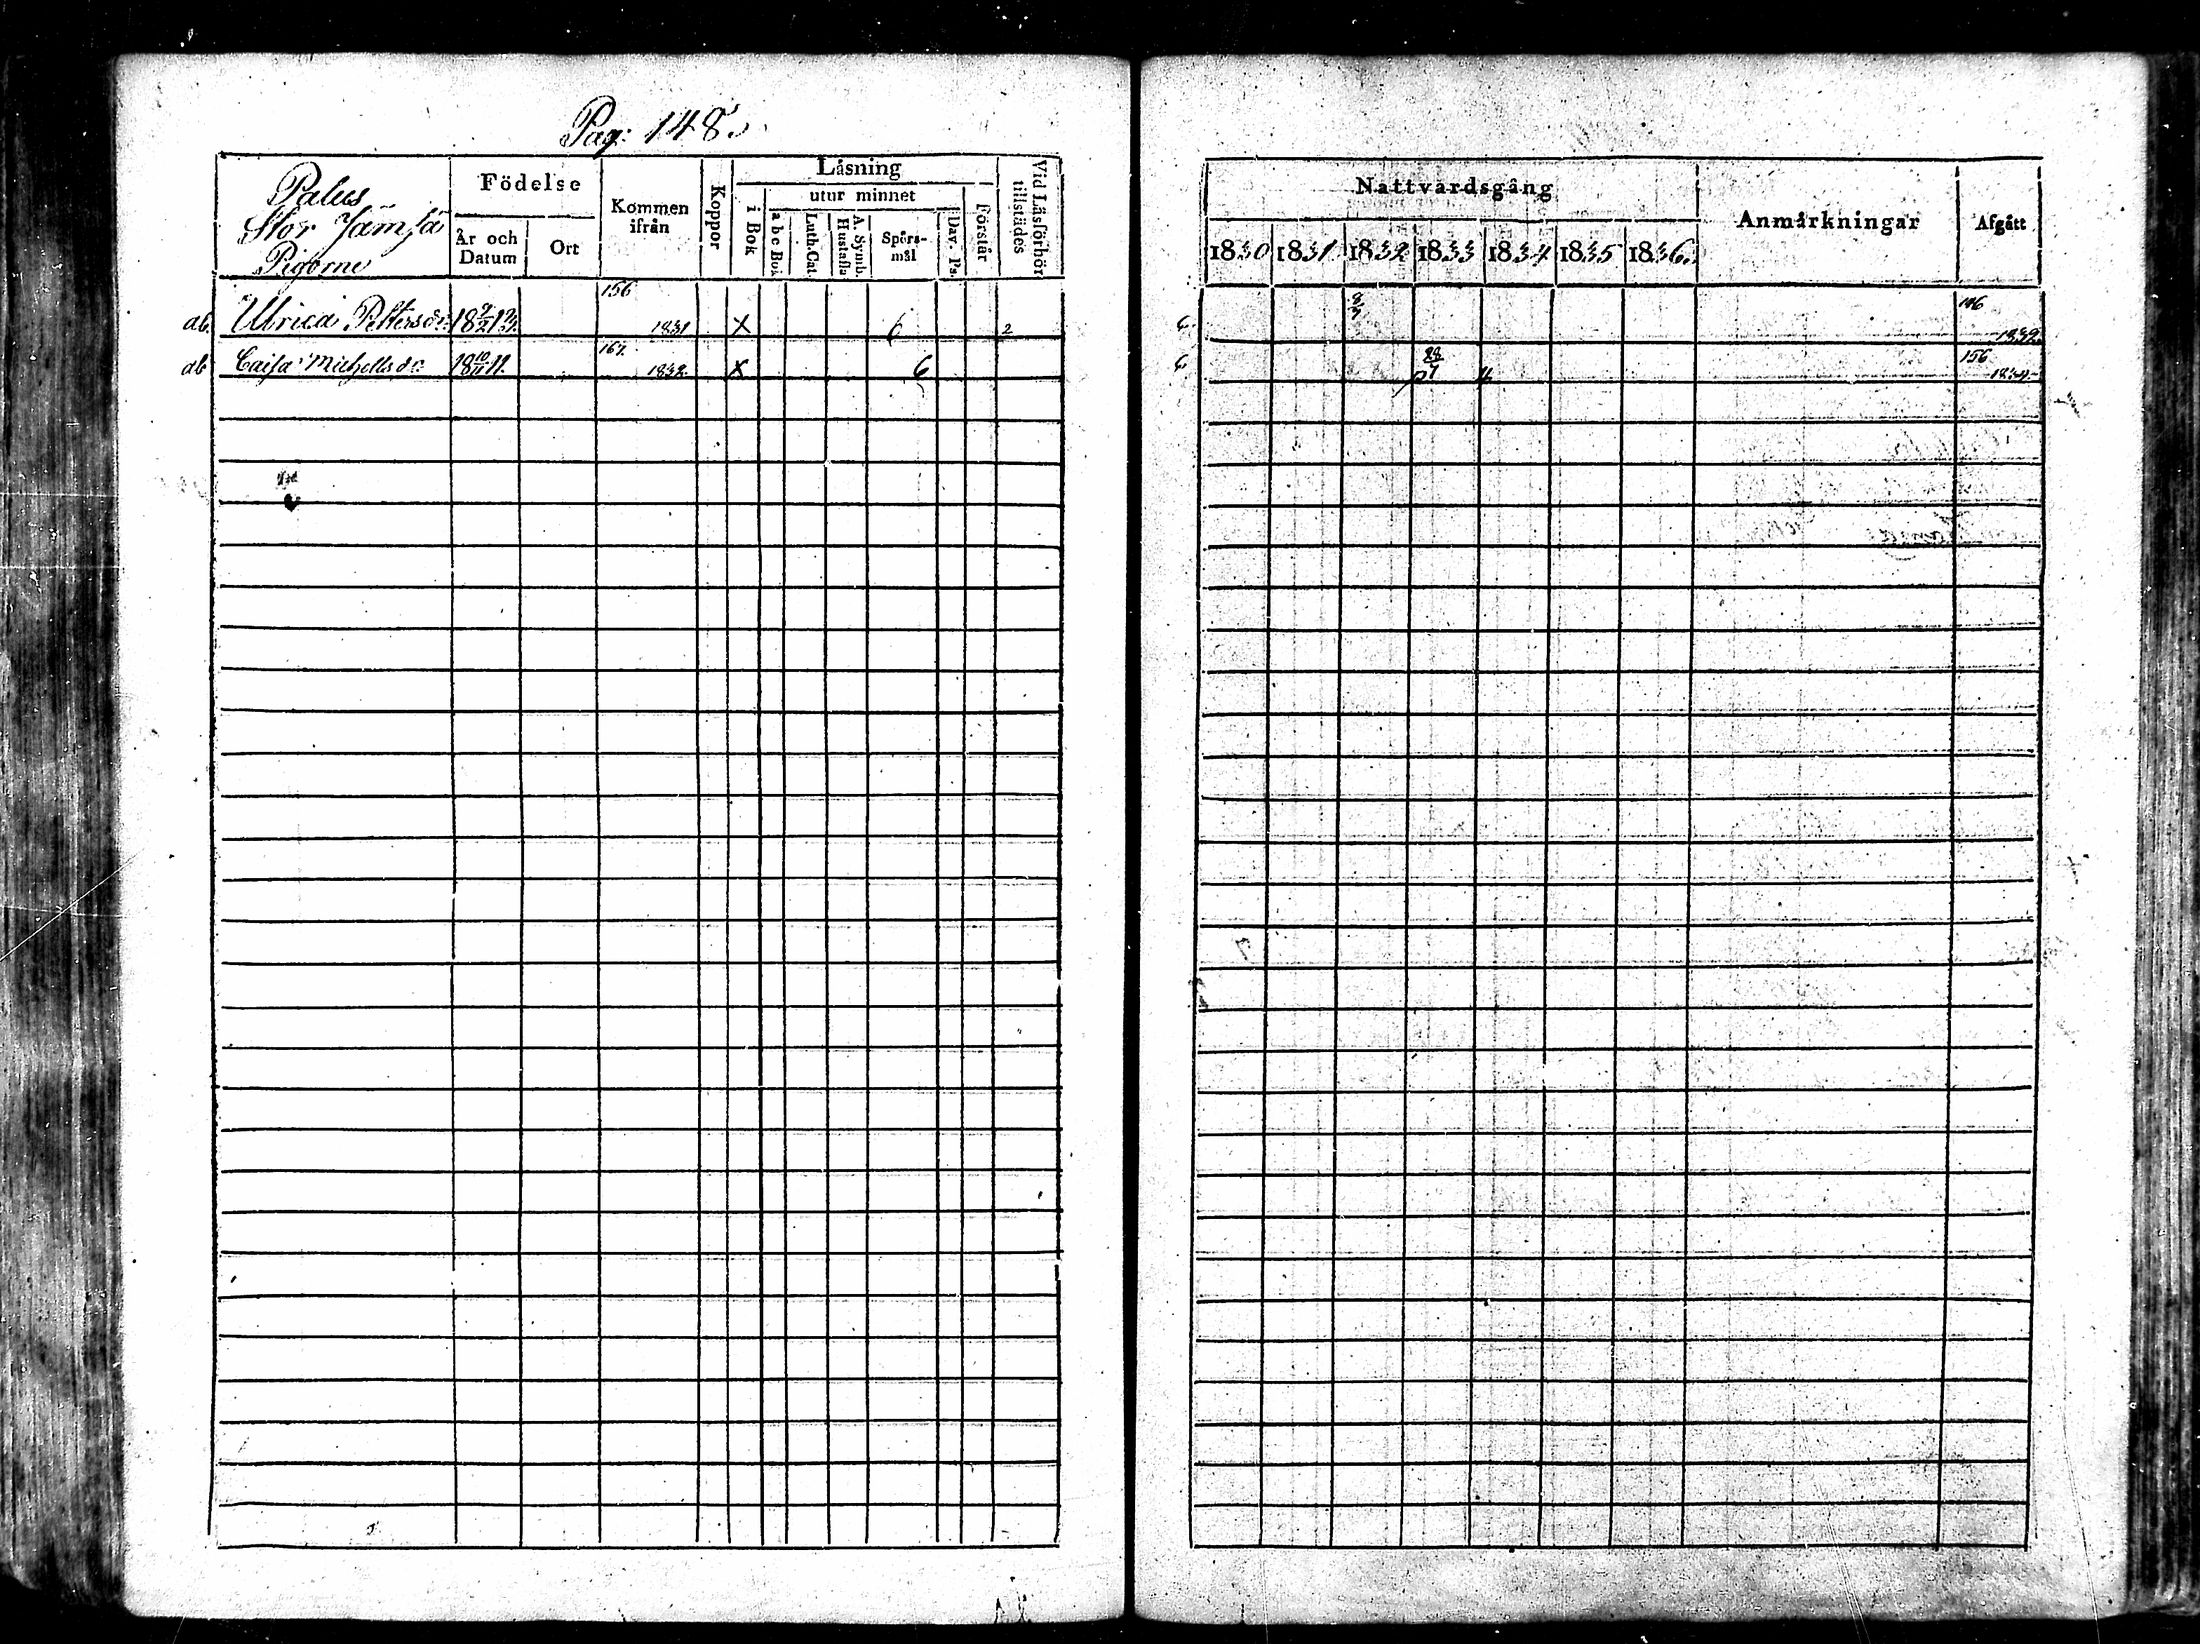 Pag: 148.
Palus
Stor Jämsä
Pigorne
Födelse
År och Datum
Ort
Kommen ifrån
Koppor
Läsning
i Bok
utur minnet
a b c Bok
Luth. Cat.
A. Symb. Hustafla
Spörs-mål
Dav. Ps.
Förstår
Vid Läsförhör tillstädes
Nattvardsgång
1830 1831 1832 1833 1834 1835 1836.
Anmärkningar
Afgått
ab. Ulrica Pettersdr. 156 1831 X 6 2
8/7 146 1832
ab Caisa Michelsdr 18 10/11 11. 167. 1832 X 6
28/7 156 1834